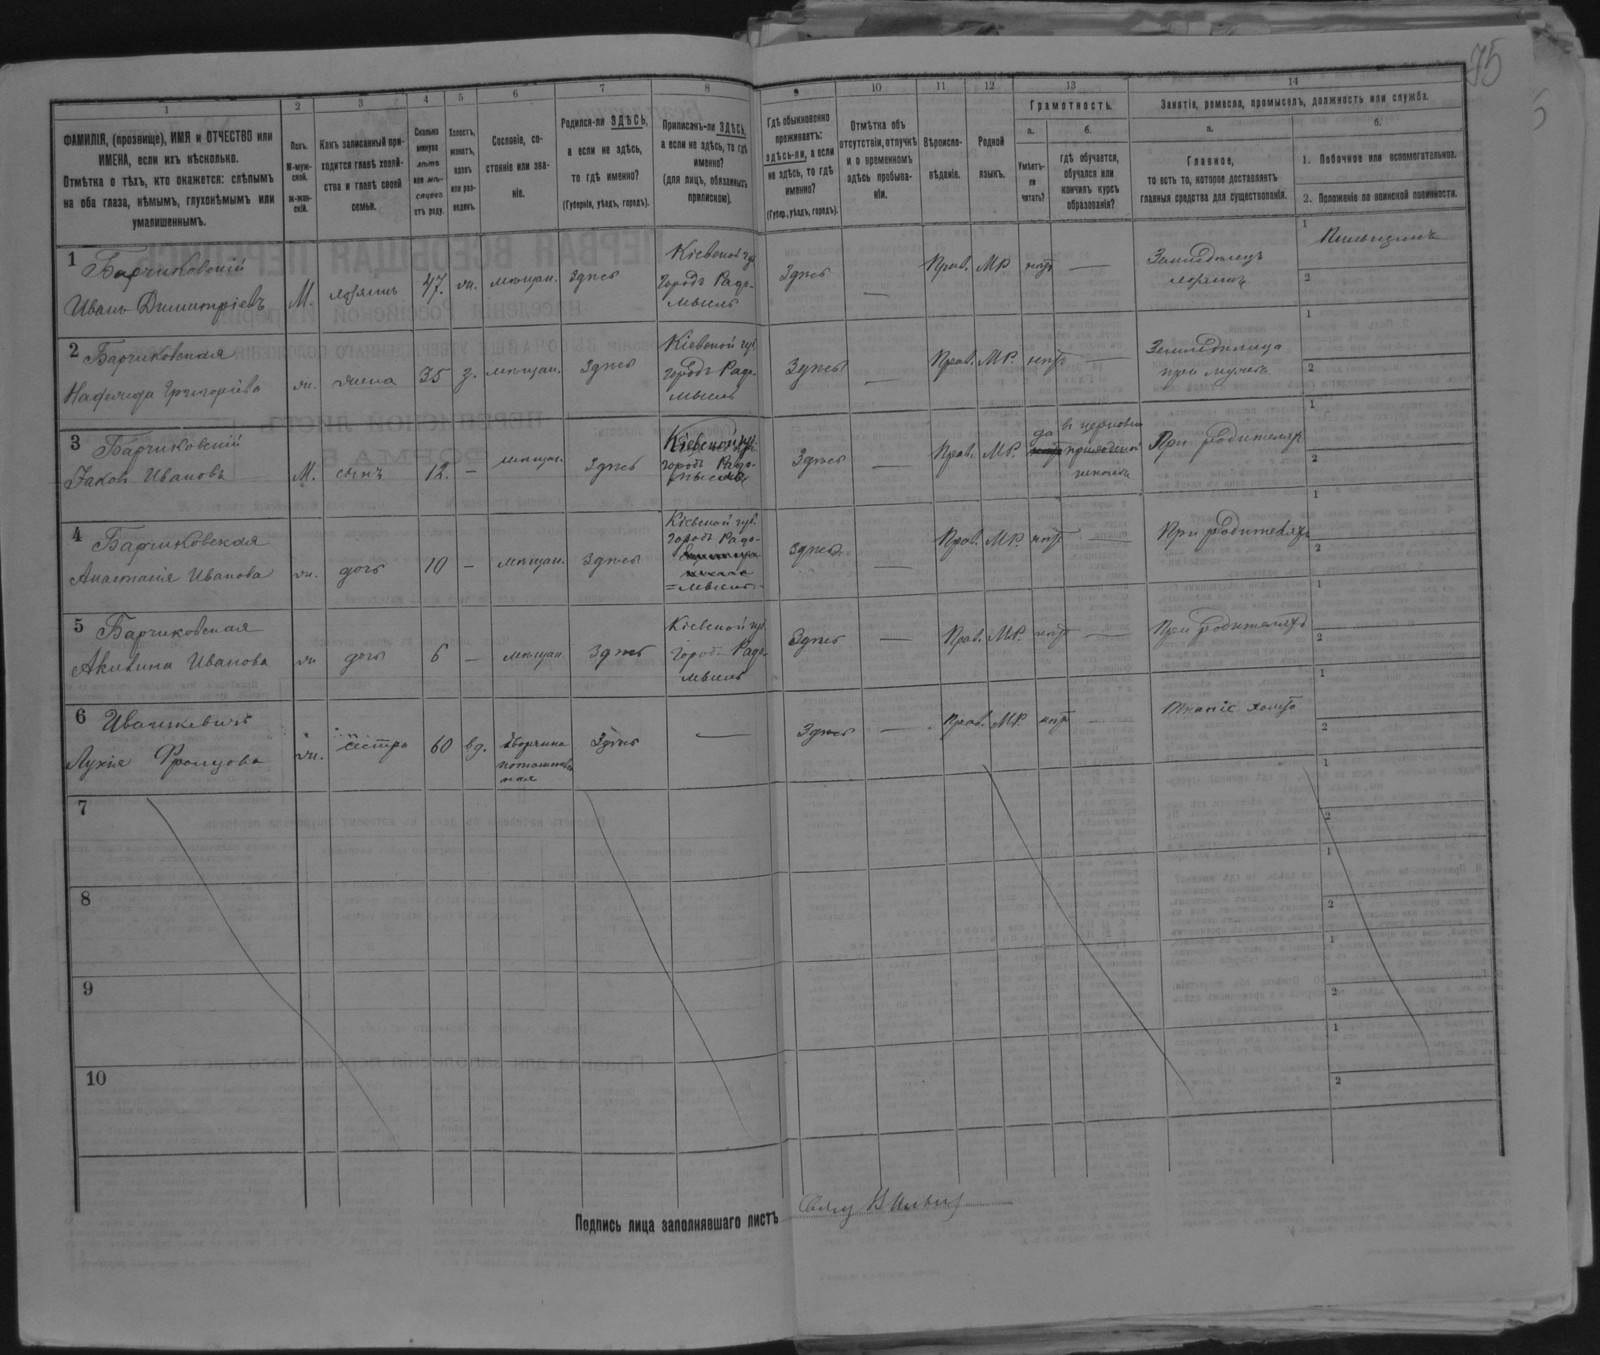 75
1 2 3 4 5 6 7 8 9 10 11 12 13 14
ФАМИЛІЯ, (прозвище), ИМЯ и ОТЧЕСТВО или
ИМЕНА, если ихъ нѣсколько.
Отмѣтка о тѣхъ, кто окажется: слѣпымъ
на оба глаза, нѣмымъ, глухонѣмымъ или
умалишеннымъ.
Полъ.
М-муж-
ской.
ж-жен-
скій.
Какъ записанный при-
ходится главѣ хозяй-
ства и главѣ своей
семьи.
Сколько
минуло
лѣтъ
или мѣ-
сяцевъ
отъ роду.
Холостъ,
женатъ,
вдовъ
или раз-
веденъ.
Сословіе, со-
стояніе или зва-
ніе.
Родился-ли ЗДѢСЬ,
а если не здѣсь,
то гдѣ именно?
(Губернія, уѣздъ, городъ).
Приписанъ-ли ЗДѢСЬ,
а если не здѣсь, то гдѣ
именно?
(для лицъ, обязанныхъ
припискою).
Гдѣ обыкновенно
проживаетъ:
здѣсь-ли, а если
не здѣсь, то гдѣ
именно?
(Губер., уѣздъ, городъ).
Отмѣтка объ
отсутствіи, отлучкѣ
и о временномъ
здѣсь пребыва-
ніи.
Вѣроиспо-
вѣданіе.
Родной
языкъ.
Грамотность.
а.
Умѣетъ-
ли
читать?
б.
Гдѣ обучается,
обучался или
кончилъ курсъ
образованія?
Занятіе, ремесло, промыселъ, должность или служба.
а.
Главное,
то есть то, которое доставляетъ
главныя средства для существованія.
б.
1. Побочное или вспомогательное.
2. Положеніе по воинской повинности.
1 Барчиковскій
Иванъ Димитріевъ
М. хозяинъ 47. ж. мѣщан. Здѣсь
Кіевской губ.
городъ Радо-
мысль
Здѣсь — Прав. МР. нѣтъ —
Земледѣлецъ
хозяинъ
1
2
2 Барчиковская
Надежда Григоріева
ж. жена 35 з. мѣщан. Здѣсь
Кіевской губ.
городъ Радо-
мысль
Здѣсь — Прав. МР. нѣтъ —
Земледѣлица
при мужѣ
1
2
3 Барчиковскій
Іаковъ Ивановъ
М. сынъ 12. — мѣщан. Здѣсь
Кіевской губ.
городъ Радо-
мысль
Здѣсь — Прав. МР. да
въ церковно
приходской
школѣ
При родителяхъ
1
2
4 Барчиковская
Анастасія Иванова
ж. дочь 10 — мѣщан. Здѣсь
Кіевской губ.
городъ Радо-
=мысль
Здѣсь — Прав. МР. нѣтъ —
При родителяхъ
1
2
5 Барчиковская
Акилина Иванова
ж. дочь 6 — мѣщан. Здѣсь
Кіевской губ.
городъ Радо-
мысль
Здѣсь — Прав. МР. нѣтъ —
При родителяхъ
1
2
6 Ивашкевичъ
Лукія
ж. сестра 60 вд.
дворянка
потомствен
ная
Здѣсь — Здѣсь — Прав. МР. нѣтъ —
Тканіе холста
1
2
7
1
2
8
1
2
9
1
2
10
1
2
Подпись лица заполнявшаго листъ